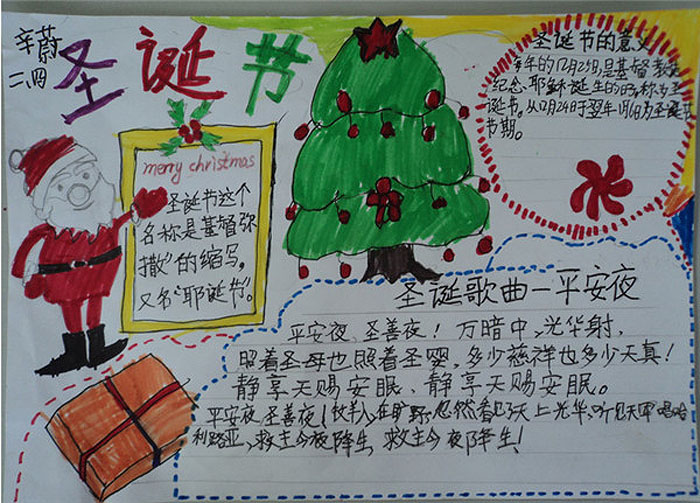 辛蔚
二、四
圣诞节
merry christmas
圣诞节这个
名称是基督弥
撒”的缩写。
又名“耶诞节”。
圣诞节的意义
每年的12月25日,是基督教徒
纪念、耶稣诞生的日子,称为圣
诞节。从12月24日于翌年1月6日为圣诞
节期。
圣诞歌曲—平安夜
平安夜、圣善夜!万暗中,光华射,
照着圣母也照着圣婴,多少慈祥也多少天真!
静享天赐安眠、静享天赐安眠。
平安夜,圣善夜!牧羊人,在旷野,忽然看见了天上光华,听见天军唱哈
利路亚,救主今夜降生,救主今夜降生!